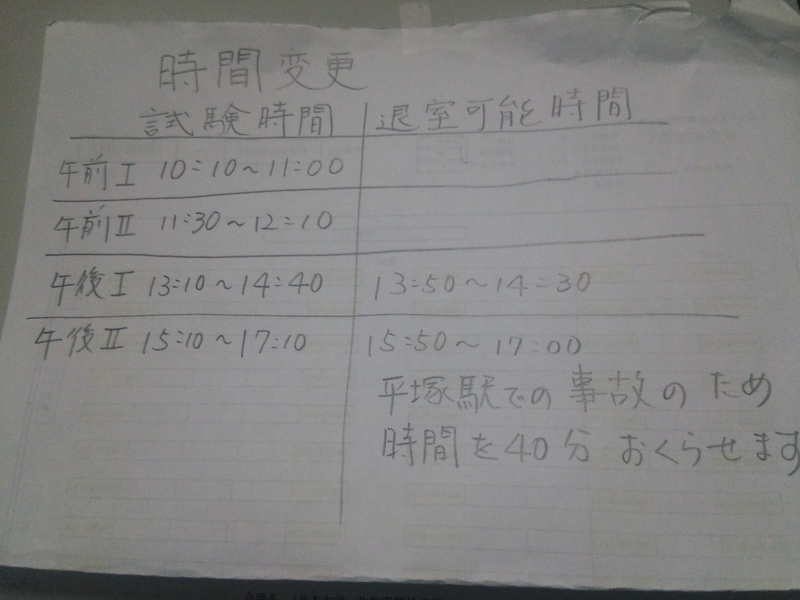 時間変更
試験時間 退室可能時間
午前Ⅰ 10:10~11:00
午前Ⅱ 11:30~12:10
午後Ⅰ 13:10~14:40 13:50~14:30
午後Ⅱ 15:10~17:10 15:50~17:00
平塚駅での事故のため
時間を40分おくらせます